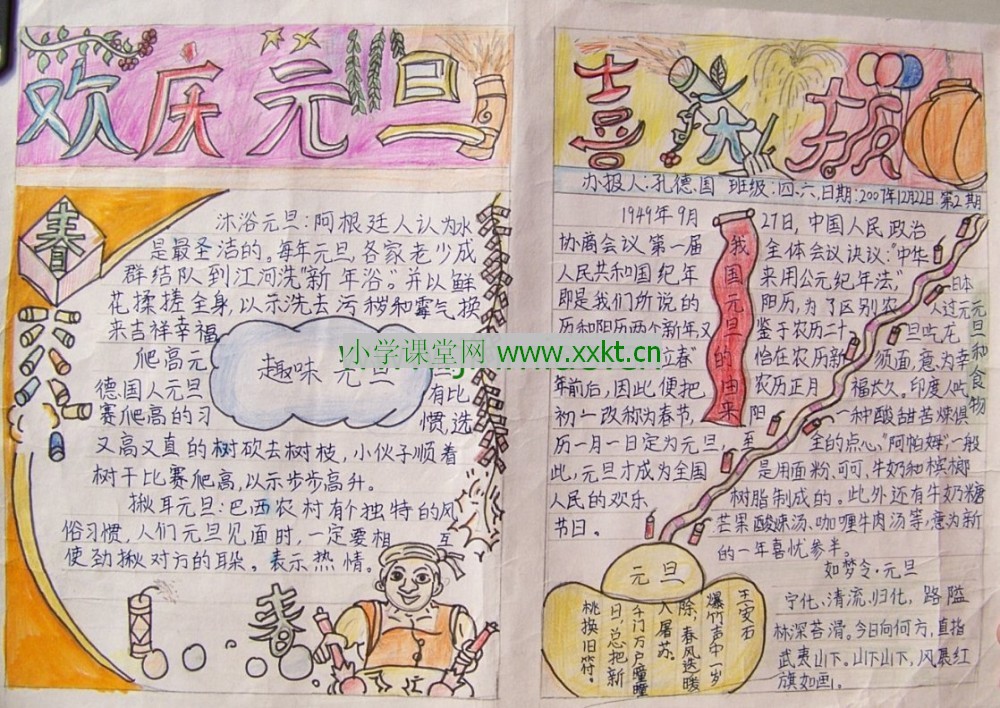 欢庆元旦
春
沐浴元旦:阿根廷人认为水
是最圣洁的。每年元旦,各家老少成
群结队到江河洗"新年浴"。并以鲜
花揉搓全身,以示洗去污秽和霉气,换
来吉祥幸福
趣味 元旦
爬高元
德国人元旦
有比
赛爬高的习
惯,选
又高又直的树砍去树枝,小伙子顺着
树干比赛爬高,以示步步高升。
揪耳元旦:巴西农村有个独特的风
俗习惯,人们元旦见面时,一定要相互
使劲揪对方的耳朵。表示热情。
春
小学课堂网 www.xxkt.cn
喜
办报人:孔德国 班级:四.六.日期:2007年12月22日.第2期
我国元旦的由来
1949年9月27日,中国人民政治
协商会议第一届全体会议决议:"中华
人民共和国纪年采用公元纪年法"
即是我们所说的阳历,为了区别农
历和阳历两个新年又鉴于农历二十
立春"恰在农历新
年前后,因此便把农历正月
初一改称为春节,阳
历一月一日定为元旦,至
此,元旦才成为全国
人民的欢乐
节日。
元旦和食物
日本
人过元
旦吃龙
须面,意为幸
福太久。印度人吃
一种酸甜苦辣俱
全的点心,"阿帕姆"一般
是用面粉、可可、牛奶和槟榔
树脂制成的。此外还有牛奶糖
芒果酸辣汤、咖喱牛肉汤等,意为新
的一年喜忧参半。
元旦
王安石
爆竹声中一岁
除,春风送暖
入屠苏。
千门万户曈曈
日,总把新
桃换旧符。
如梦令·元旦
宁化、清流、归化,路隘
林深苔滑。今日向何方,直指
武夷山下。山下山下,风展红
旗如画。